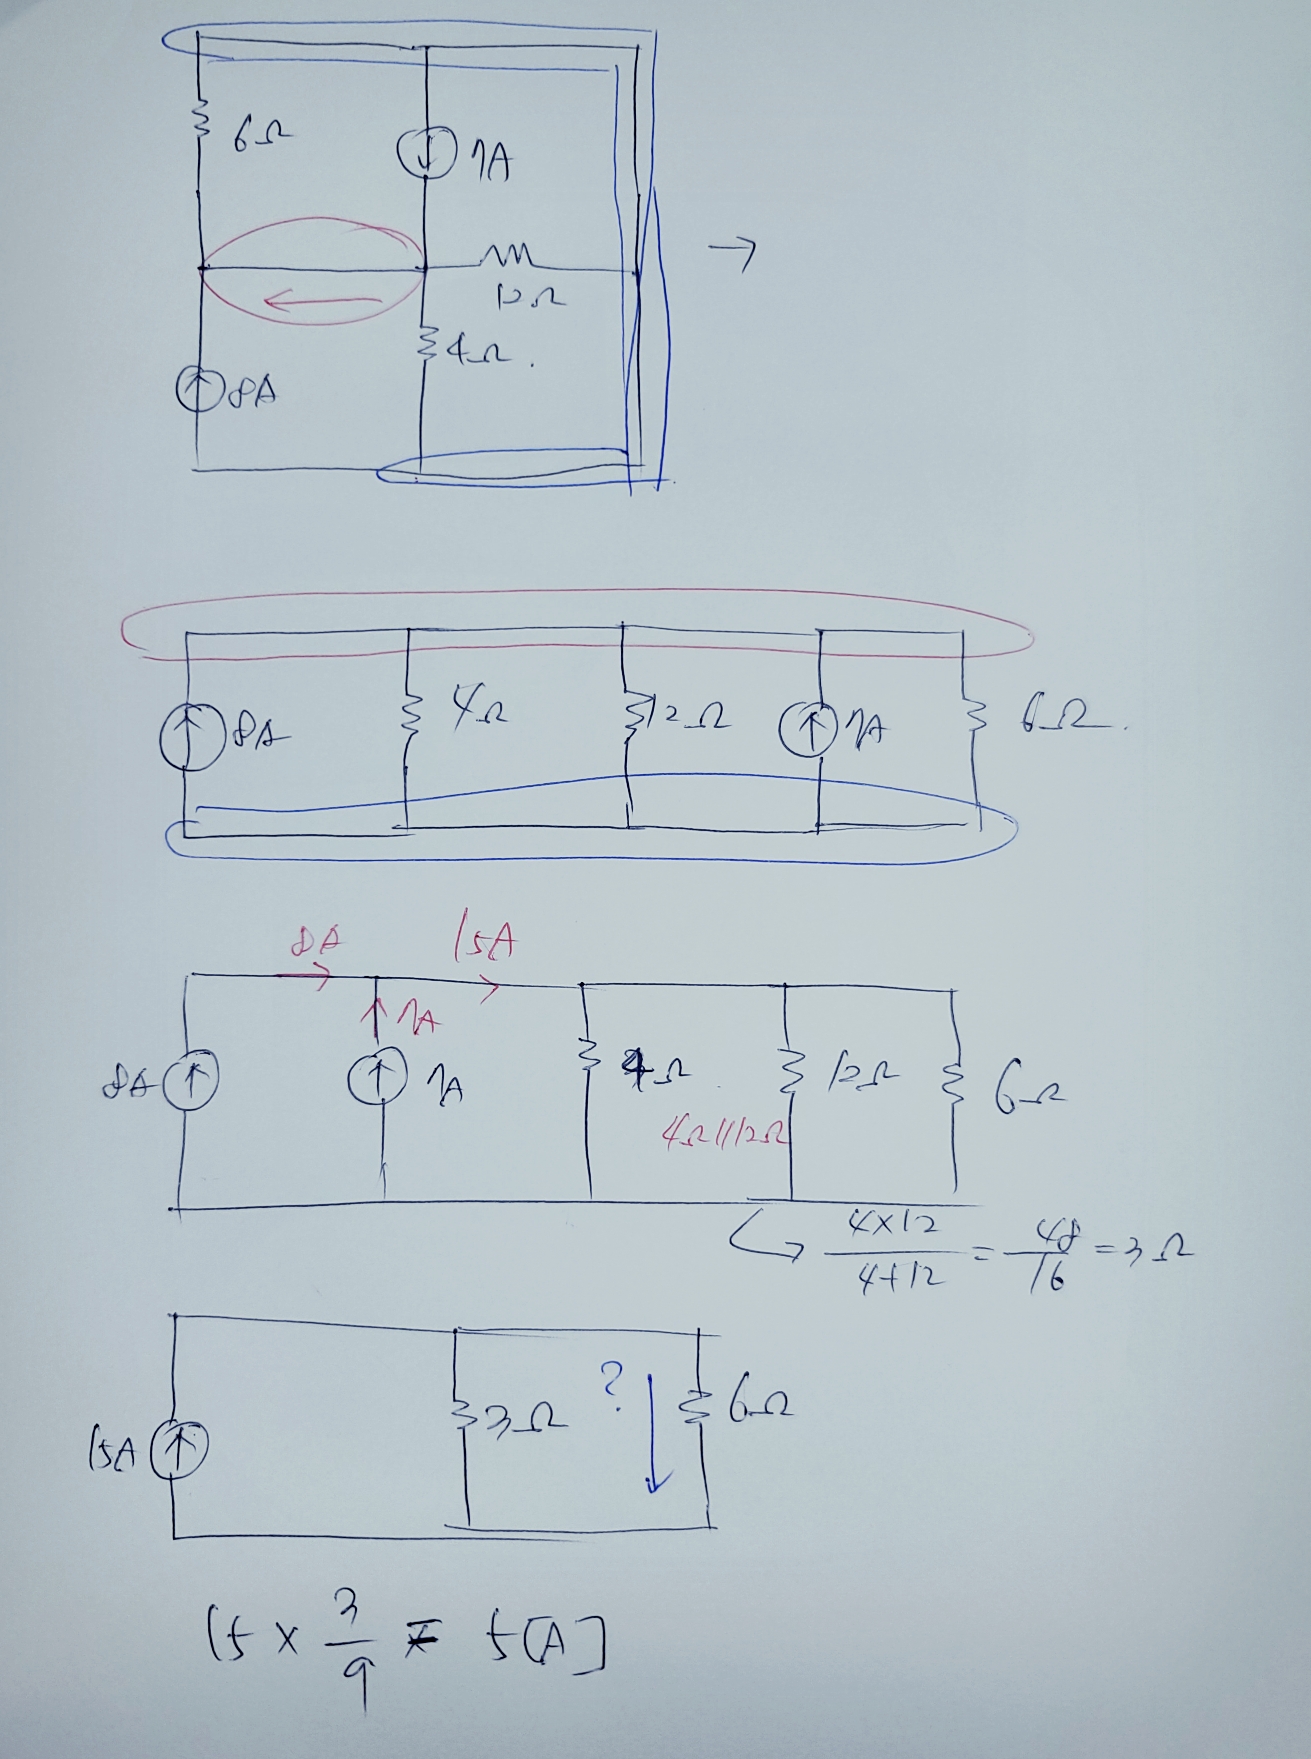 6Ω
7A
12Ω
→
4Ω.
8A
8A
4Ω
12Ω
7A
6Ω.
8A
15A
7A
8A
7A
4Ω
12Ω
6Ω
4Ω//12Ω
4×12/4+12 = 48/16 = 3Ω
15A
3Ω
?
6Ω
15 × 3/9 = 5[A]